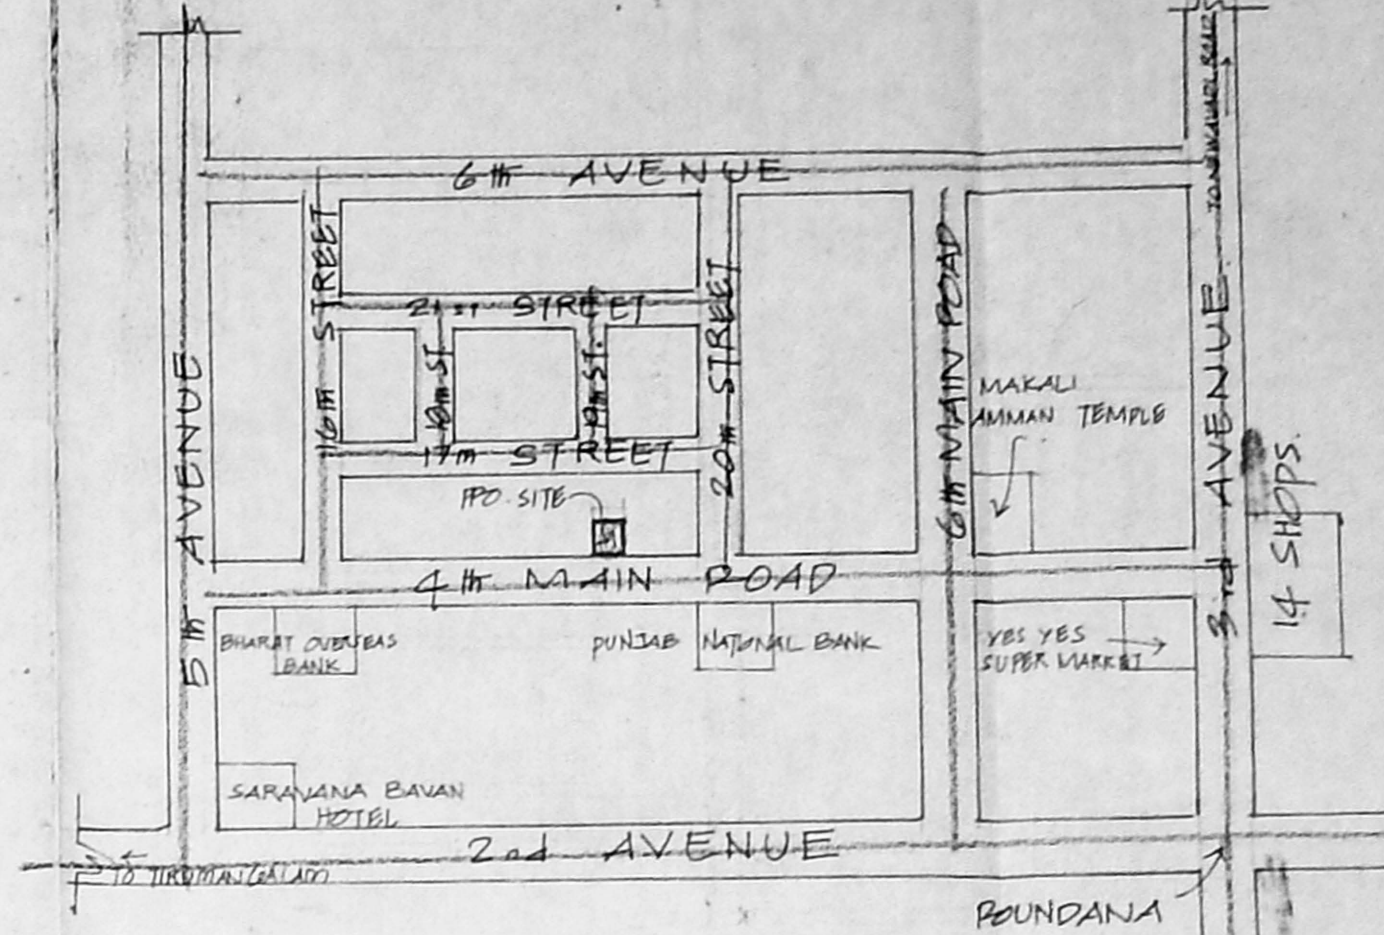 6th AVENUE
16th STREET
21st STREET
18th ST.
19th ST.
17th STREET
20th STREET
6th MAIN ROAD
5th AVENUE
3rd AVENUE
MAKALI
AMMAN TEMPLE
PPO. SITE
14 SHOPS.
4th MAIN ROAD
BHARAT OVERSEAS
BANK
PUNJAB NATIONAL BANK
YES YES
SUPER MARKET
SARAVANA BAVAN
HOTEL
2nd AVENUE
TO TIRUMANGALAM
ROUNDANA